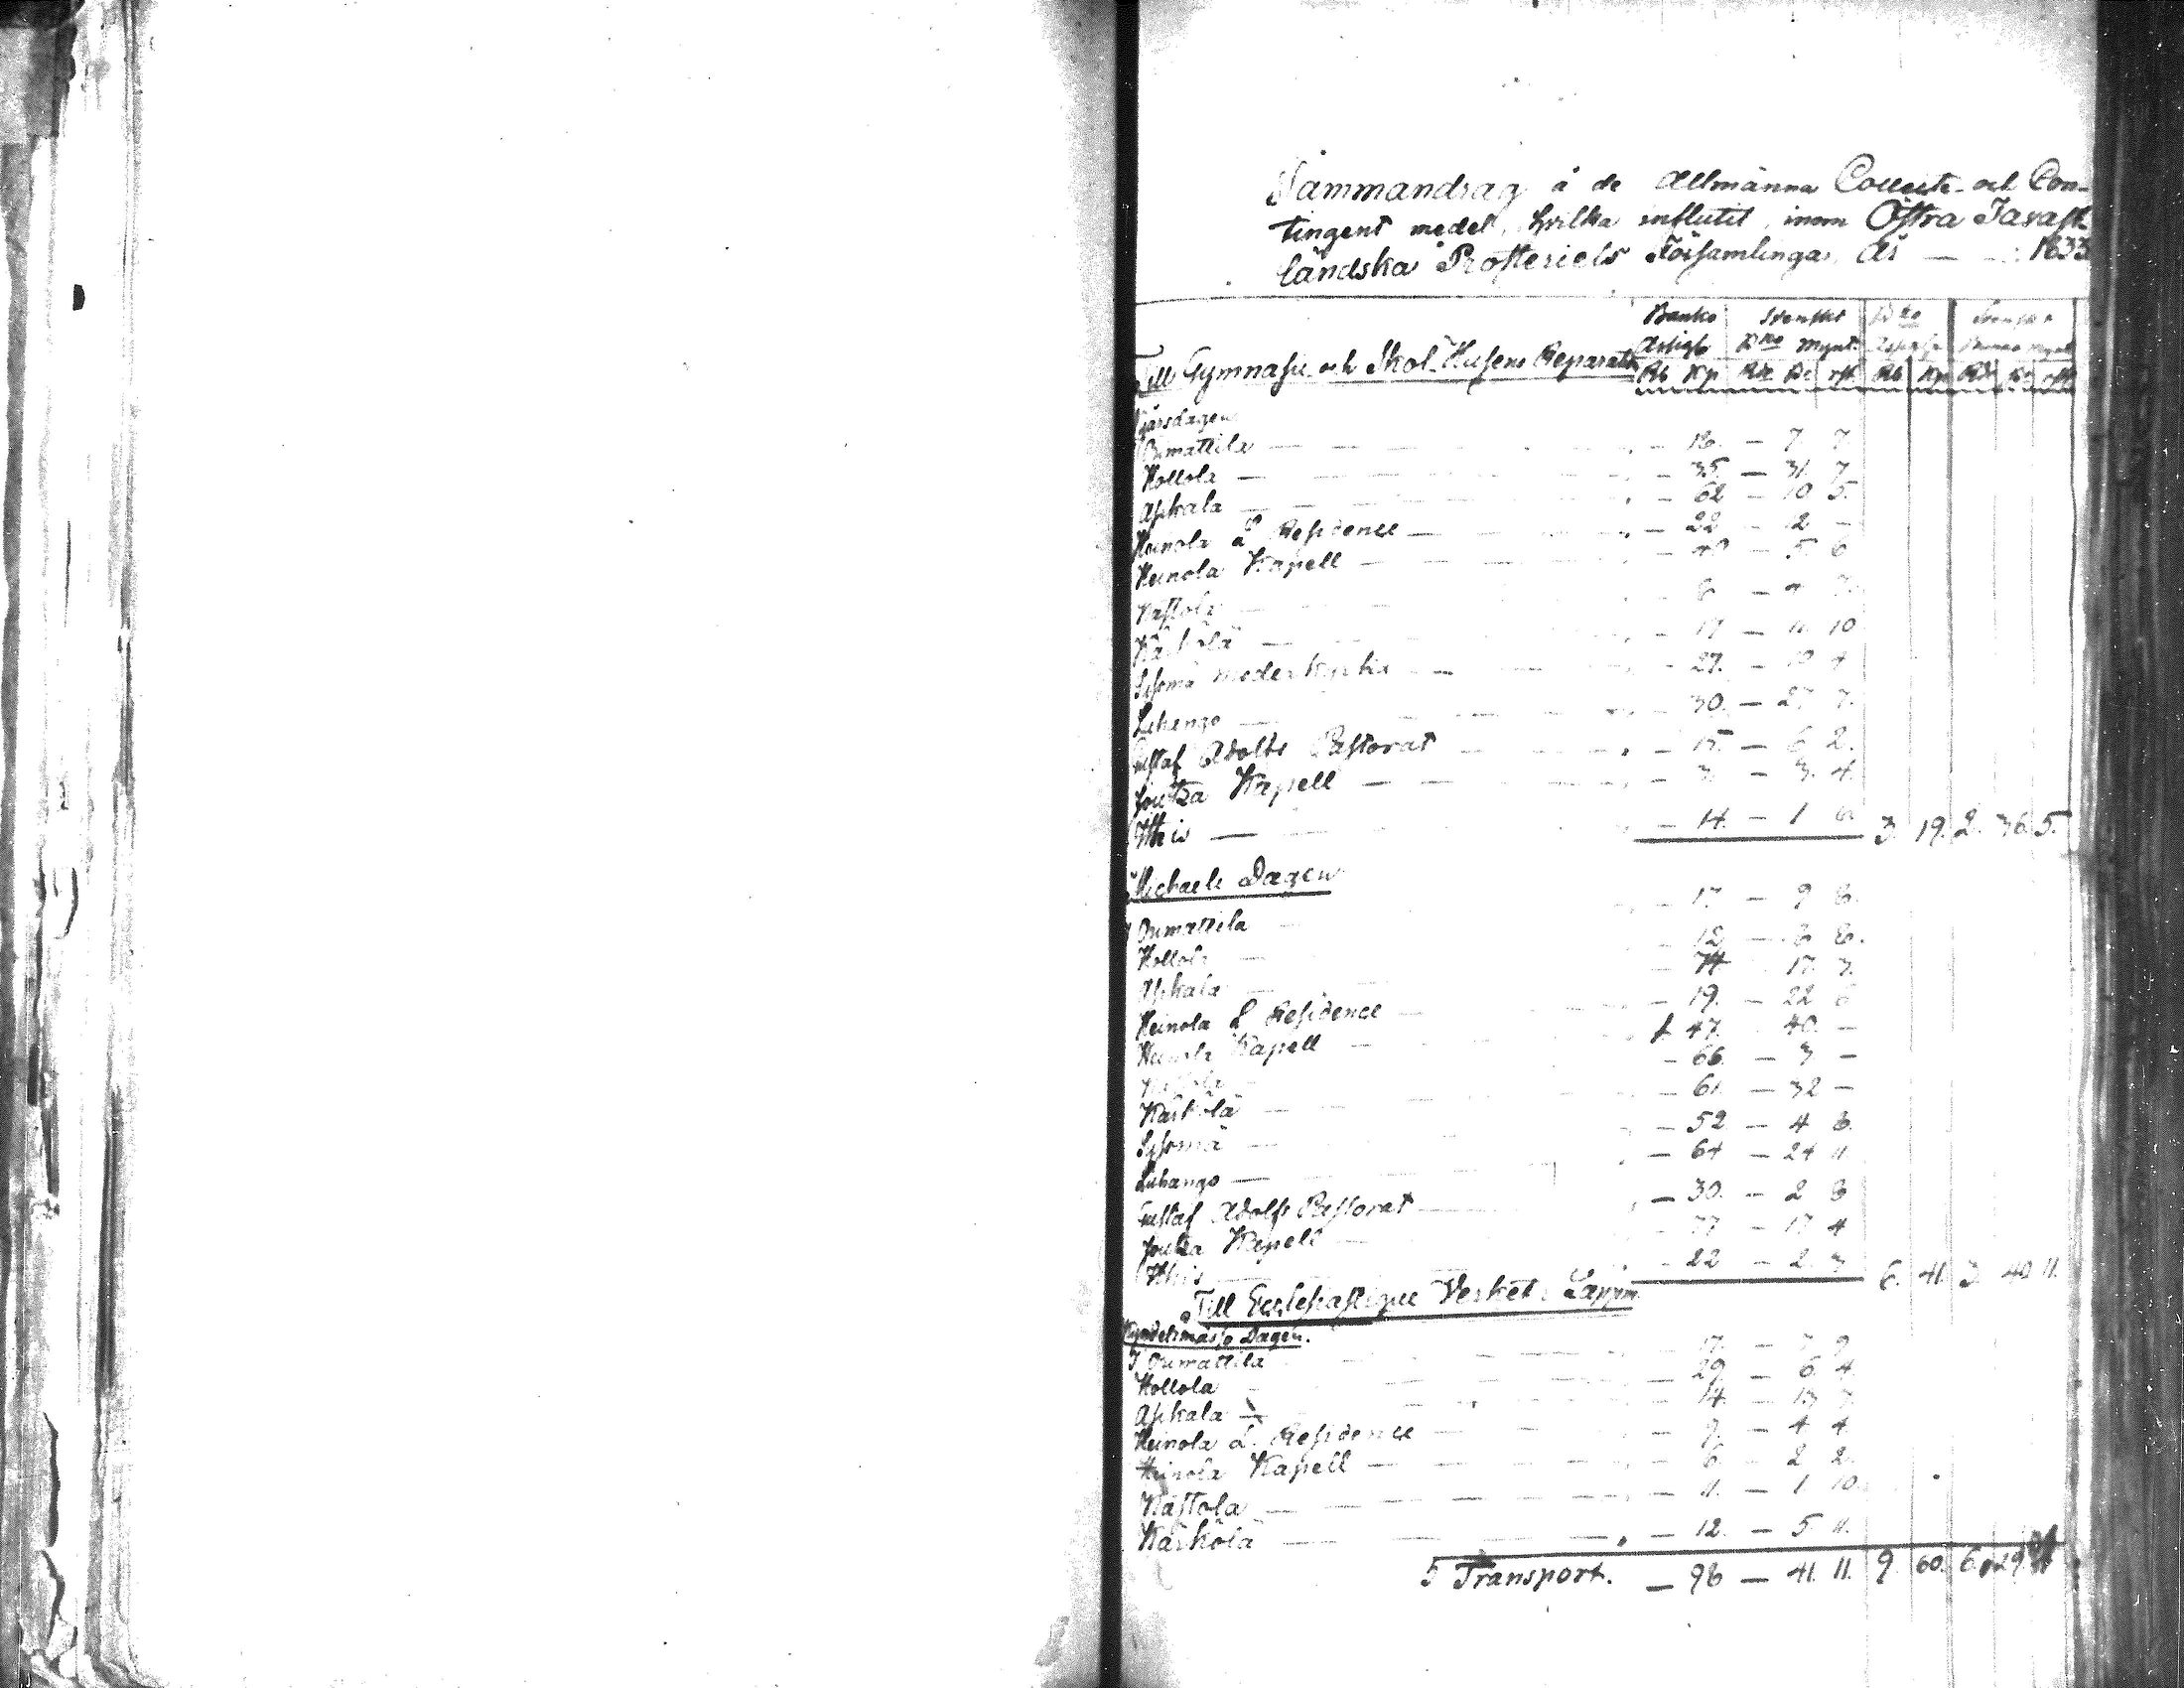 Sammandrag å de Allmänna Collecte- och Con-
tingent medel, hvilka influtit inom Östra Tavast-
ländska Prosteriets Församlingar År — 1833
Banko Svenskt Bko Svenskt
Assign Bko Mynt Assign Banco Mynt
Till Gymnasie och Skol-Husens Reparation Rb Kp Rdr sk rst Rb Kp Rdr sk rst
Nyårsdagen
Orimattila — 18. — 7 7
Hollola — 35. — 31. 7
Asikala — 62 — 10 5.
Heinola L. Residence — 22 — 12 —
Heinola Kapell — 5 6
Nastola — 8
Kärkölä — 17 — 11. 10
Sysmä Moderkyrka — 27. — 19 4
Luhango — 30. — 27 7.
Gustaf Adolfs Pastorat — 15. — 6 2.
Joutza Kapell — 3. — 3. 4.
Ithis — 14. — 1 6. 3. 19. 2. 36. 5.
Michaeli Dagen
I Orimattila — 17 — 9 8.
Hollola — 12 — 8 8.
Asikala — 74 17. 7.
Heinola L. Residence — 19. — 22 6
Heinola Kapell 1. 47. 40. —
Nastola — 66. — 3 —
Kärkölä — 61. — 32 —
Sysmä — 52 — 4 8.
Luhango — 64 — 24 11
Gustaf Adolfs Pastorat — 30. — 2 8
Joutza Kapell — 77 — 17 4
Ithis — 22 — 2. 3 6. 41. 3. 40. 11.
Till Ecclesiastique Verket i Lappm.
Kyndelsmässo Dagen.
I Orimattila — 17. — 7 9
Hollola — 29 — 6 4.
Asikala — 14. — 13 7.
Heinola L. Residence — 9. — 4 4.
Heinola Kapell — 6. — 2 2.
Nastola — 11. — 1 10.
Kärkölä — 12. — 5 11.
Transport. — 98 — 41. 11. 9. 60. 6. 29.